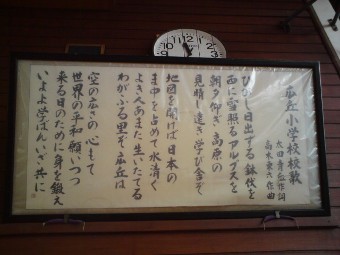 広丘小学校校歌
太田青丘 作詞
高木東六 作曲
ひむがし日出する鉢伏を
西に雪照るアルプスを
朝夕仰ぎ高原の
見晴し遠き学び舎ぞ
地図を開けば日本の
ま中を占めて水清く
よき人あまた生いたてる
わがふる里ぞ広丘は
空の広さの心もて
世界の平和願いつつ
来る日のために身を鍛え
いよよ学ばんいざ共に